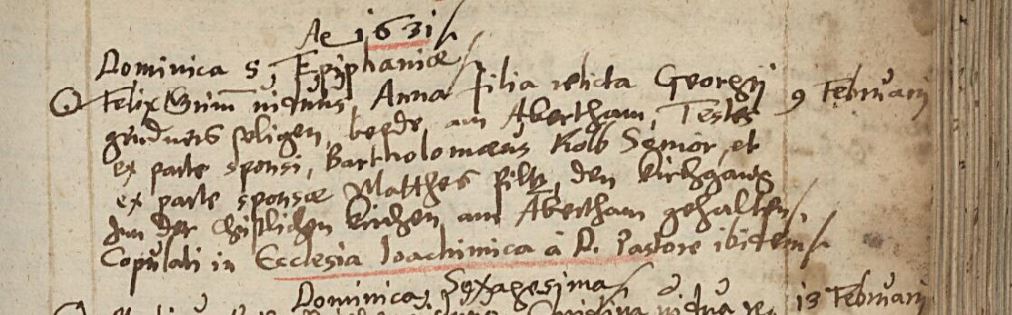 Ao 1631
Dominica 5, Epiphaniæ
Felix Grim̄ viduus, Anna filia relicta Georgij 9 Februarij
seligen, beyde am Abertham, Testes
ex parte sponsi, Bartholomæus Kolb Senior, et
ex parte sponsæ Matthes Piltz, den Kirchgang
Inn der Christlichen Kirchen am Abertham gehalten,
Copulati in Ecclesia Ioachimica à D. Pastore ibidem
Dominica, Sexagesima, 13 Februarij
vidua